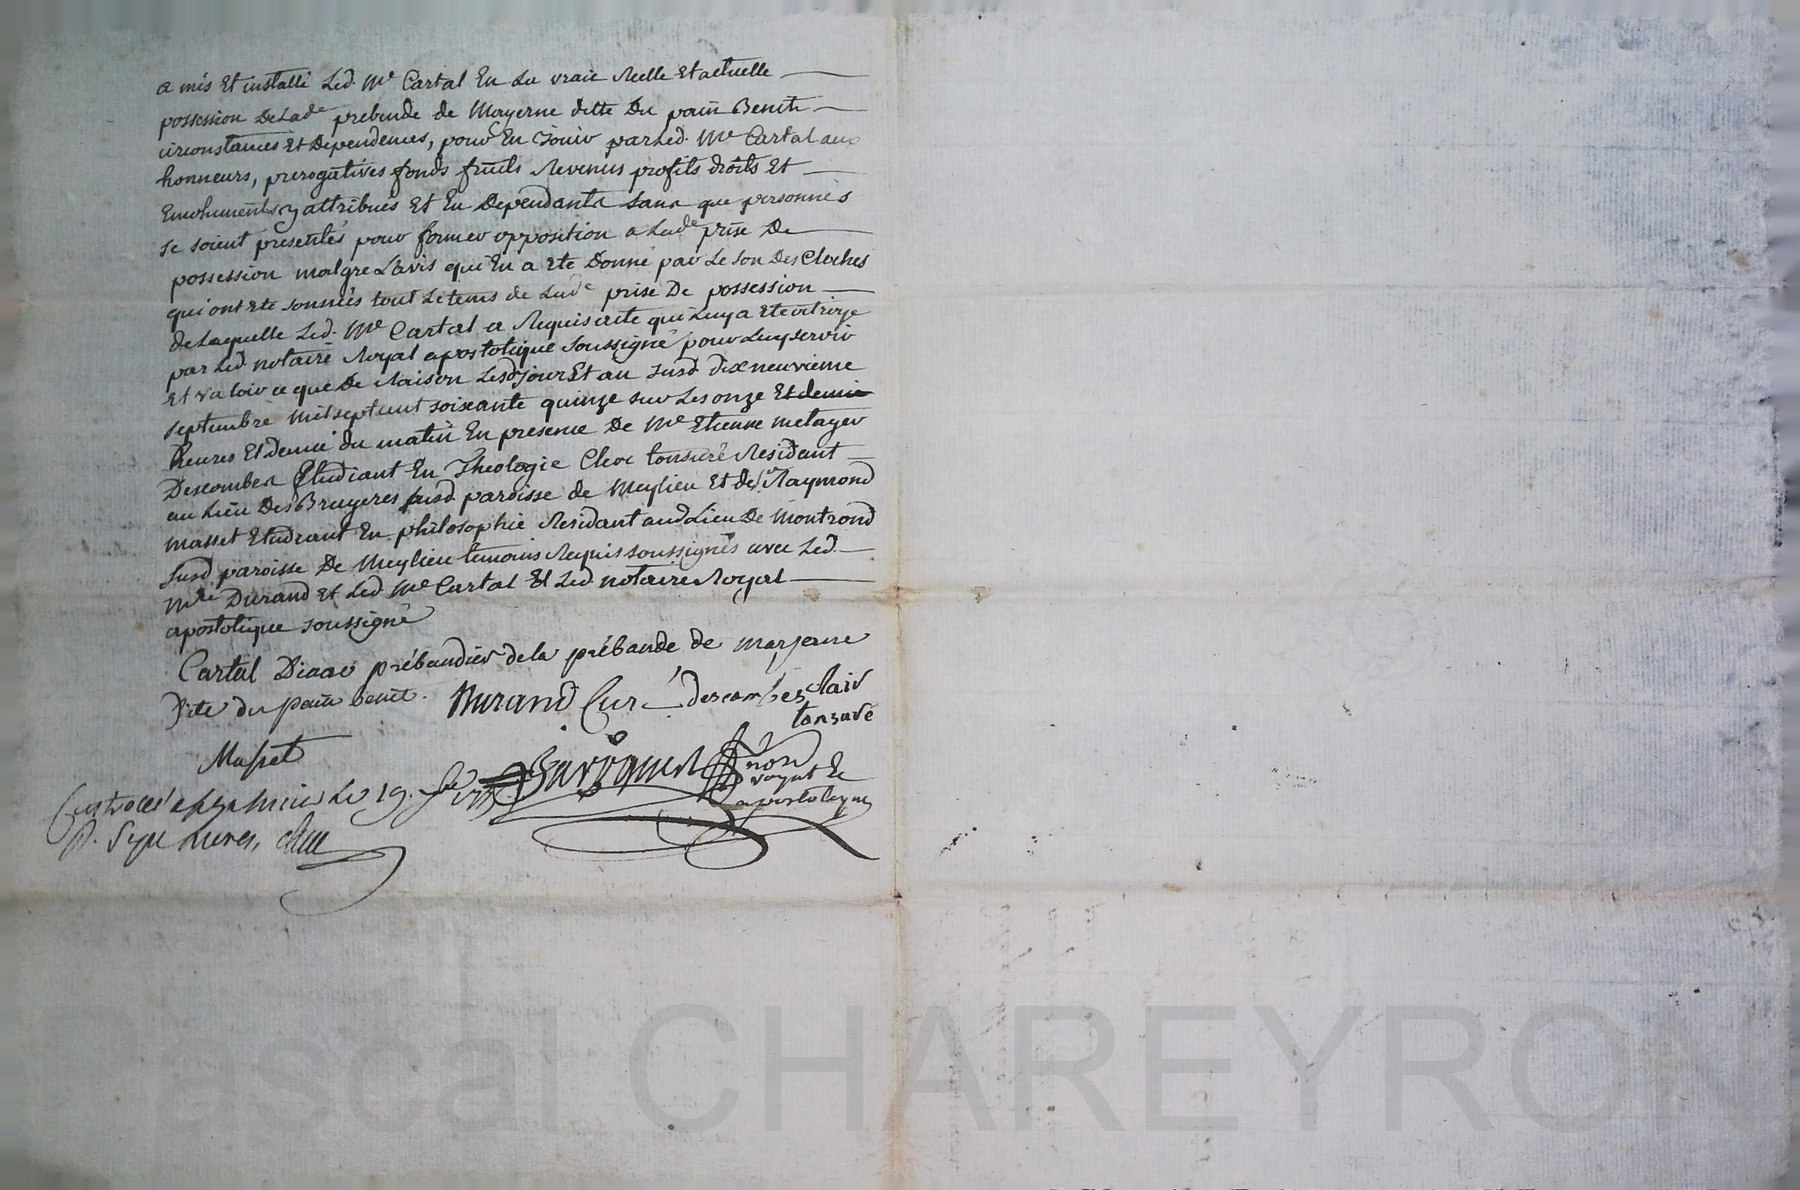 a mis Et installé Led. Me Cartal En La vraie Réelle Et actuelle
possession De Lade prebende de Mayerne ditte Du pain Benith
circonstances Et Dependences, pour En Jouir par Led. Me Cartal aux
honneurs, prerogatives fonds fruits Revenus profits droits Et
Emoluments y attribués Et En Dependants Sans que personnes
se soient presentés pour former opposition a Lade prise De
possession malgre L'avis qui En a Ete Donné par Le son Des Cloches
qui ont Ete sonnées tout Le tems de Lade prise De possession
de Laquelle Led. Me Cartal a Requis acte qui Luy a Ete octroye
par Led. notaire Royal apostolique Soussigné pour Luy servir
Et valoir ce que De Raison Lesd. jour Et an Susd. dix neuvieme
septembre mil sept cent soixante quinze sur Les onze Et demie
heures Et Demie du matin En presence De Me Etienne metayer
Descombes Etudiant En Theologie Clerc tonsuré Residant
au Lieu Des Bruyeres susd. paroisse de Meylieu Et de Sr Raymond
Masset Etudiant En philosophie Residant aud. Lieu De Montrond
susd. paroisse De Meylieu temoins Requis soussignés avec Led.
mre Durand Et Led. Me Cartal Et Led. notaire Royal
apostolique soussigné
Cartal Diacr prébandier de la prébande de marjerne
Dite du pain benit. Durand Curé descombes Clair
tonsuré
Masset
non
royal Et
apostolique
Controllé a le 19.